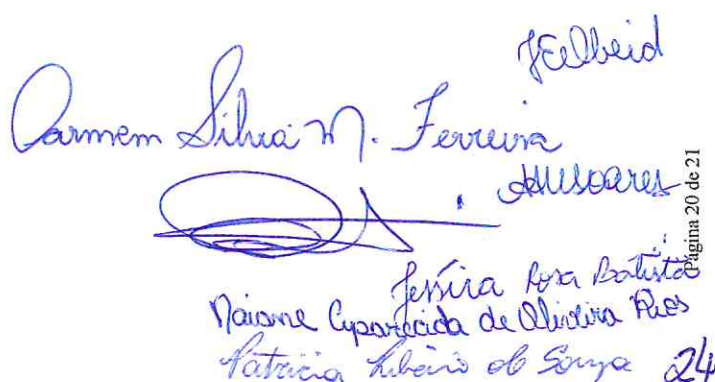 Carmem Silvia M. Ferreira
Página 20 de 21
Jessica Rosa Batista
Naiane Aparecida de Oliveira Rios
Patricia Ribeiro de Souza 24